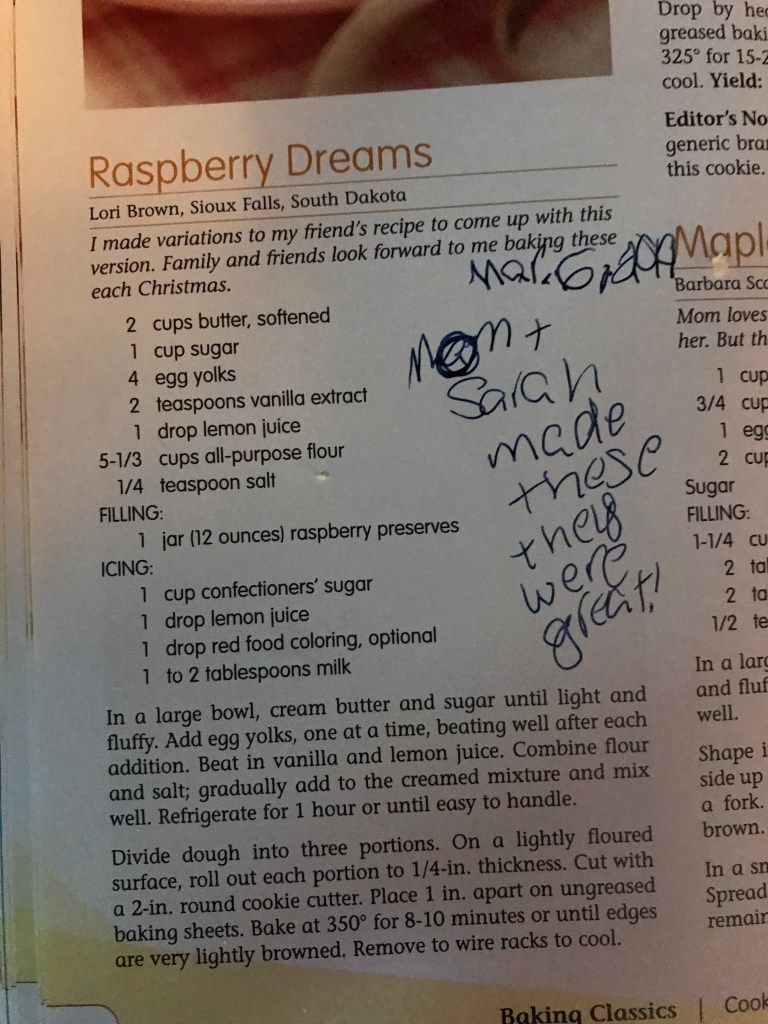 Raspberry Dreams
Lori Brown, Sioux Falls, South Dakota
I made variations to my friend's recipe to come up with this
version. Family and friends look forward to me baking these
each Christmas.
2 cups butter, softened
1 cup sugar
4 egg yolks
2 teaspoons vanilla extract
1 drop lemon juice
5-1/3 cups all-purpose flour
1/4 teaspoon salt
FILLING:
1 jar (12 ounces) raspberry preserves
ICING:
1 cup confectioners' sugar
1 drop lemon juice
1 drop red food coloring, optional
1 to 2 tablespoons milk
Mar. 6,
Mom +
Sarah
made
these
they
were
great!
In a large bowl, cream butter and sugar until light and
fluffy. Add egg yolks, one at a time, beating well after each
addition. Beat in vanilla and lemon juice. Combine flour
and salt; gradually add to the creamed mixture and mix
well. Refrigerate for 1 hour or until easy to handle.
Divide dough into three portions. On a lightly floured
surface, roll out each portion to 1/4-in. thickness. Cut with
a 2-in. round cookie cutter. Place 1 in. apart on ungreased
baking sheets. Bake at 350° for 8-10 minutes or until edges
are very lightly browned. Remove to wire racks to cool.
Drop by
greased
325° for
cool. Yield:
Editor's
generic
this cookie.
Barbara
Mom loves
her. But
1
3/4
1
2
Sugar
FILLING:
1-1/4
2
2
1/2
In a
and
well.
Shape
side up
a fork.
brown.
In a
Spread
Baking Classics |